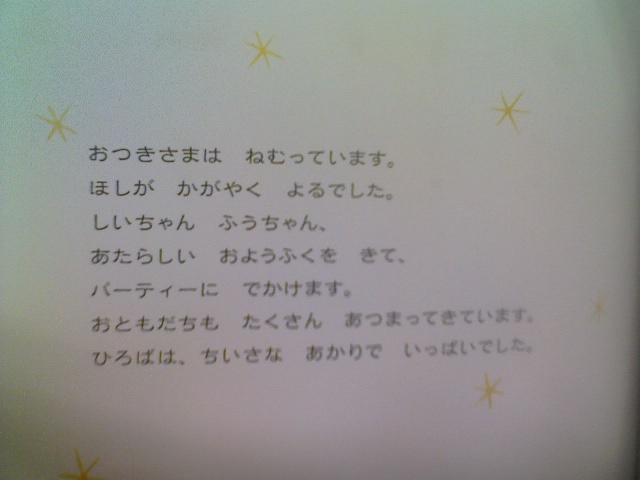 おつきさまは　ねむっています。
ほしが　かがやく　よるでした。
しいちゃん　ふうちゃん、
あたらしい　おようふくを　きて、
パーティーに　でかけます。
おともだちも　たくさん　あつまってきています。
ひろばは、ちいさな　あかりで　いっぱいでした。